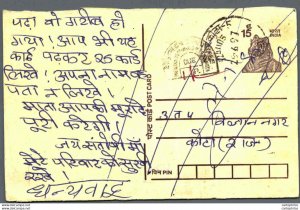 पढ़ा वो गरीब हो
गया। आप भी यह
कार्ड पढ़कर 25 कार्ड
लिखे। अपना नाम
पता न लिखें।
माता आपकी मुरादें
पूरी करेगी।
जय संतोषी माँ
परिवार को सुखी
धन्यवाद
पोस्ट कार्ड POST CARD
15
भारत INDIA
विज्ञान नगर
कोटा (राज॰)
पिन PIN